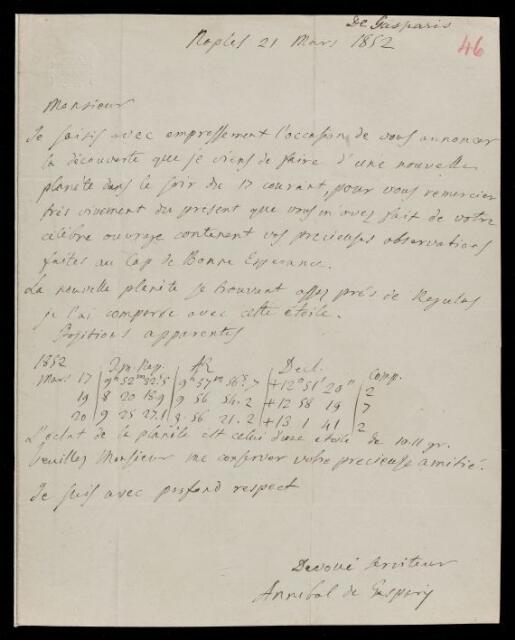 De Gasparis
Naples 21 Mars 1852
46
Monsieur
Je saisis avec empressement l'occasion de vous annoncer
la découverte que je viens de faire d'une nouvelle
planète dans le soir du 17 courant, pour vous remercier
très vivement du present que vous m'avez fait de votre
célèbre ouvrage contenent vos precieuses observations
faites au Cap de Bonne Esperance.
La nouvelle planète se trouvant assez près de Regulus
je l'ai comparée avec cette étoile.
Positions apparentes
1852 Nap. AR Decl. Comp.
Mars 17 9h 52m 32s.5 9h 57m 56s.7 +12° 51' 20" 2
19 8 20 18.9 9 56 54.2 +12 58 19 7
20 9 25 27.1 56 21.2 +13 1 41 2
L'eclat de la planète est celui d'une étoile de 10.11 gr.
Veuillez Monsieur me conserver votre precieuse amitié.
Je suis avec profond respect
Devoué serviteur
Annibal de Gasparis